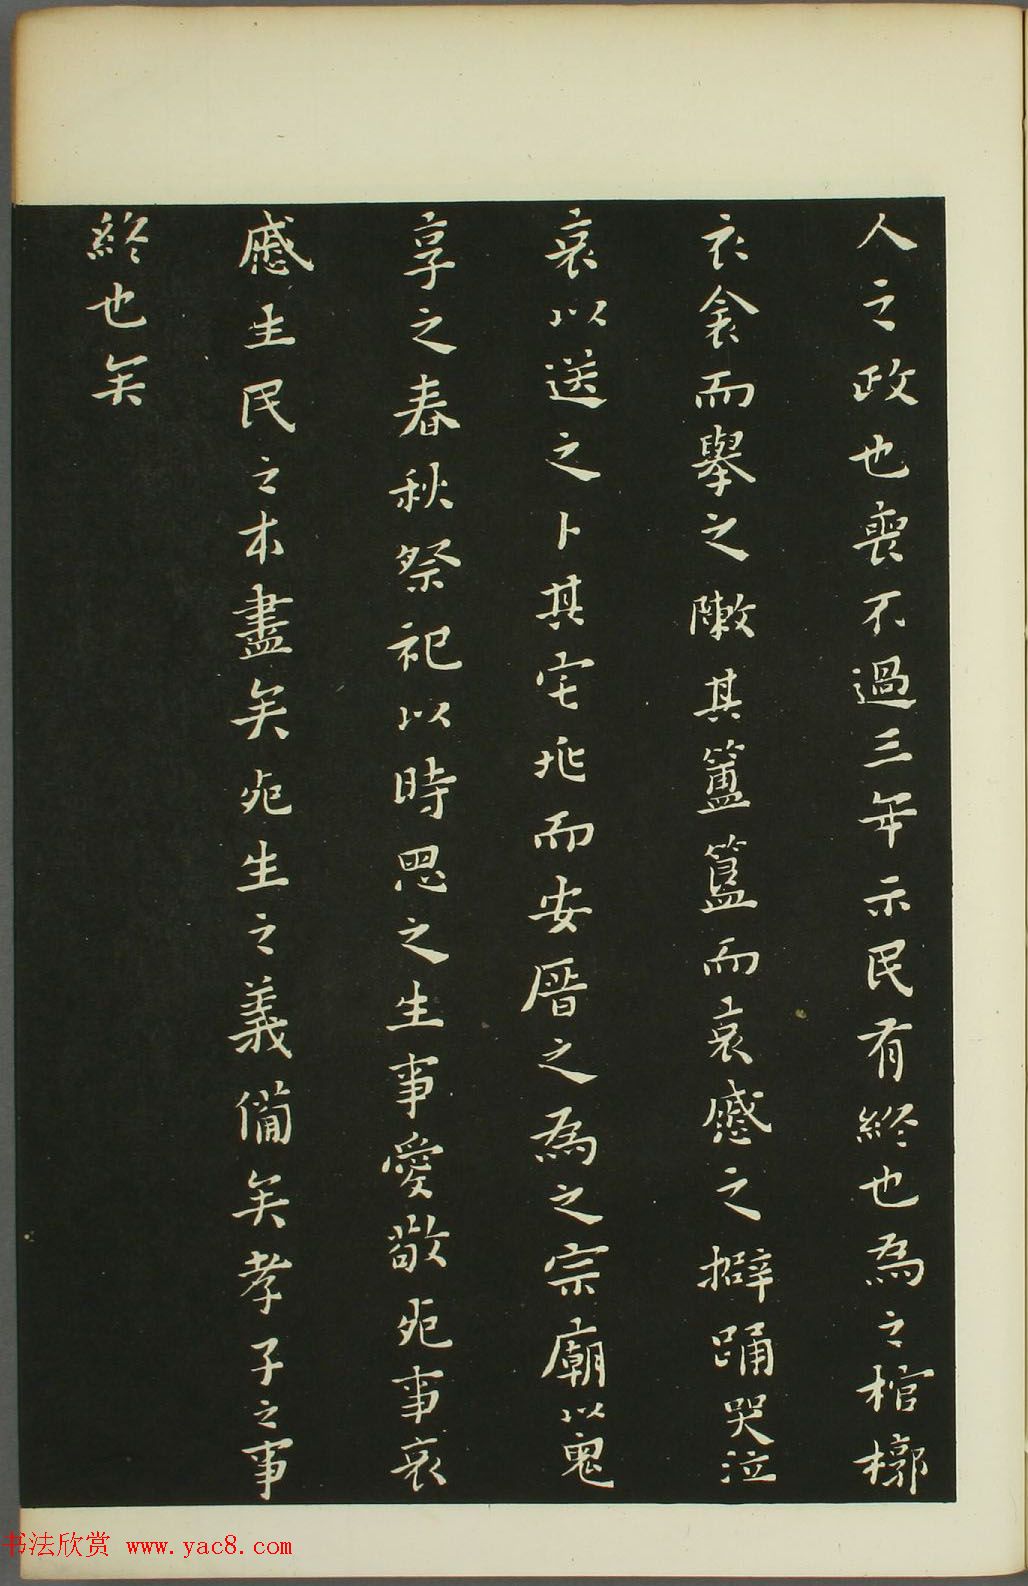 人之政也喪不過三年示民有終也為之棺槨
衣衾而舉之陳其簠簋而哀慼之擗踊哭泣
哀以送之卜其宅兆而安厝之為之宗廟以鬼
享之春秋祭祀以時思之生事愛敬死事哀
慼生民之本盡矣死生之義備矣孝子之事
終也矣
书法欣赏 www.yac8.com